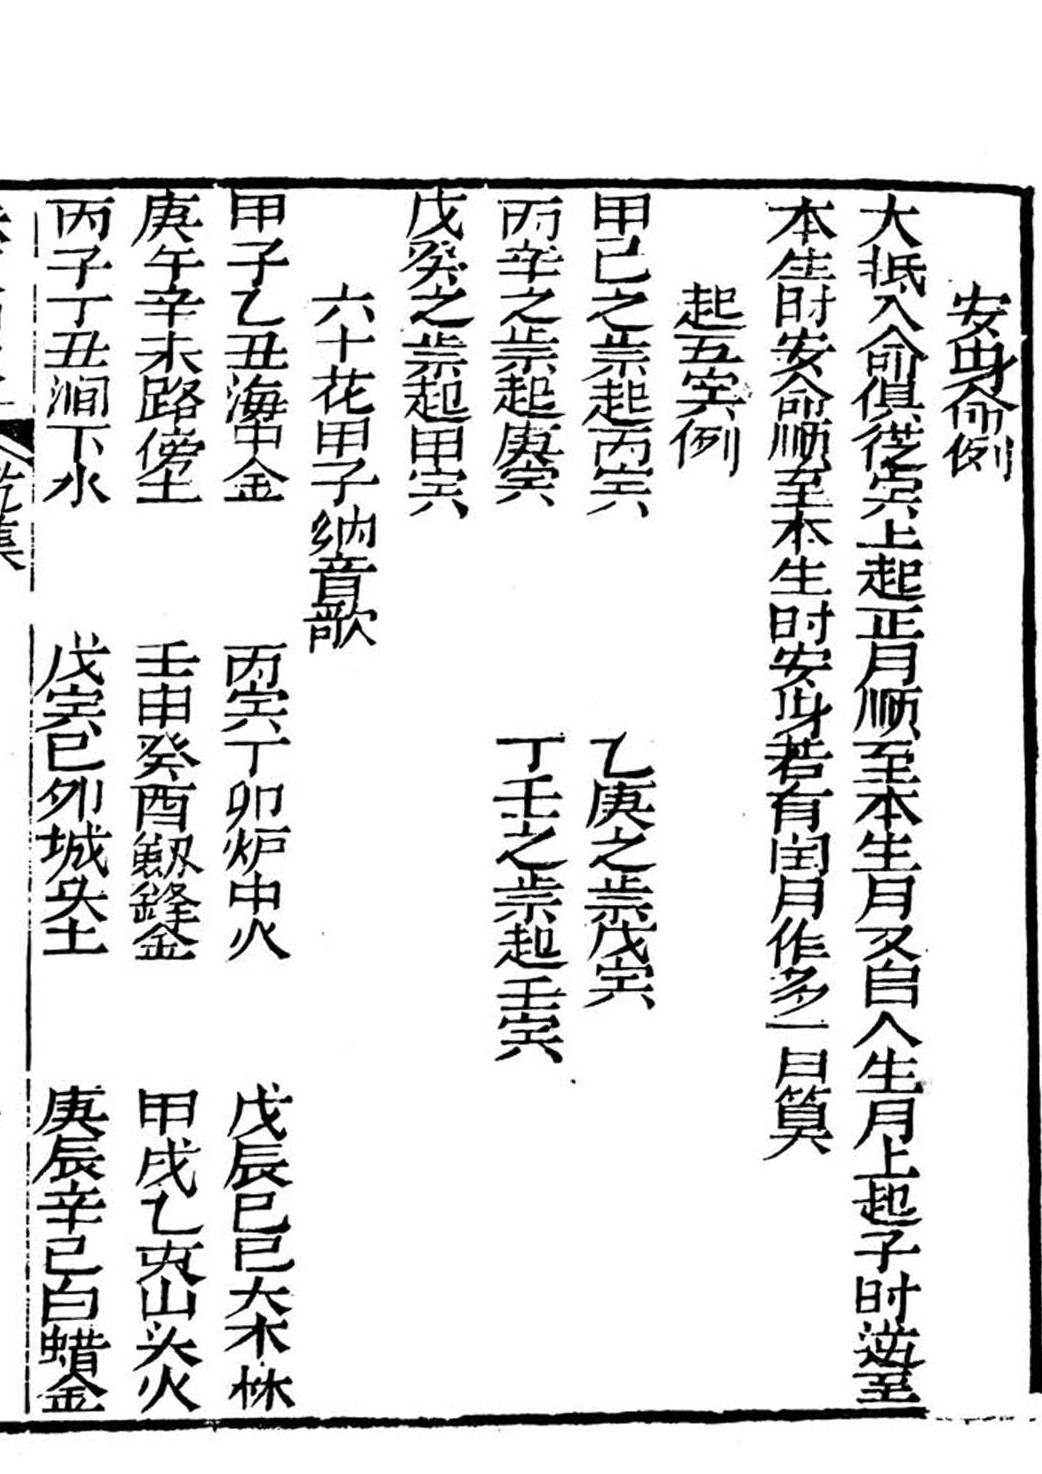 安身命例
大抵人命俱從寅上起正月順至本生月又自人生月上起子时逆至
本生时安命順至本生时安身若有闰月作多一日算
起五寅例
甲己之岁起丙寅　乙庚之岁戊寅
丙辛之岁起庚寅　丁壬之岁起壬寅
戊癸之岁起甲寅
六十花甲子纳音歌
甲子乙丑海中金　丙寅丁卯炉中火　戊辰巳巳大木林
庚午辛未路傍土　壬申癸酉劔鋒金　甲戌乙亥山头火
丙子丁丑澗下水　戊寅巳卯城头土　庚辰辛己白蜡金